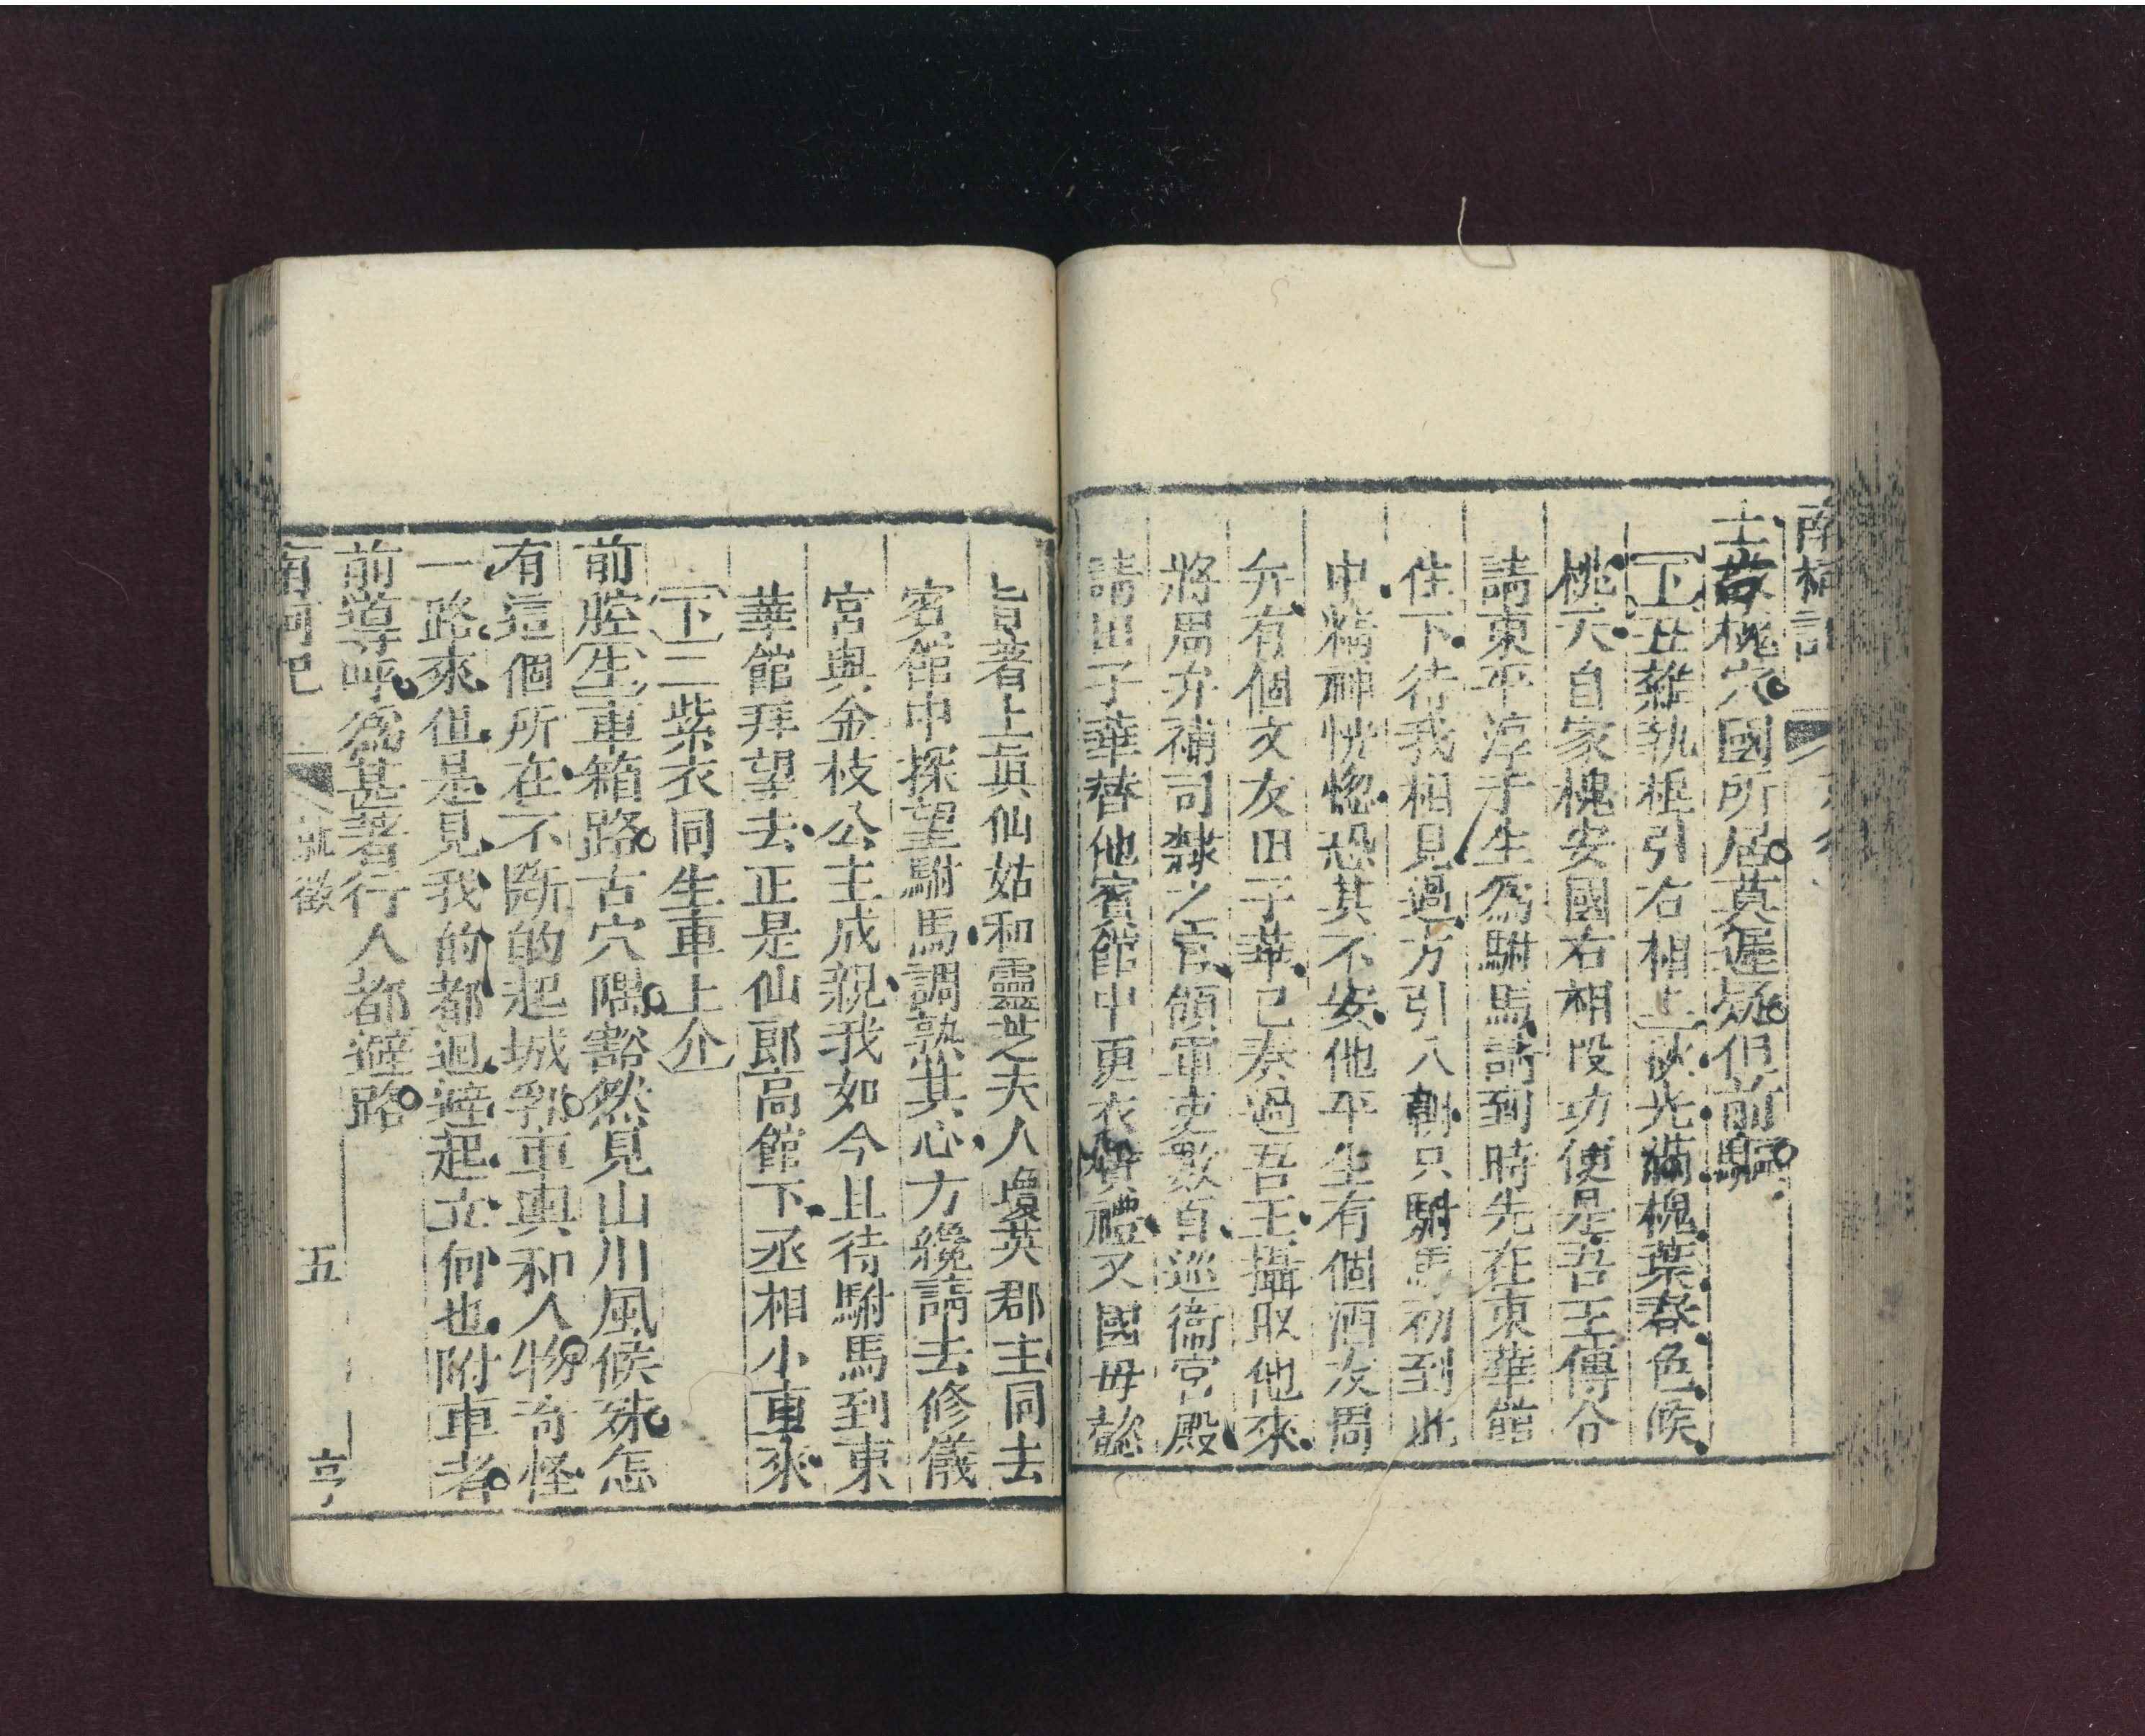 南柯記
土營槐穴國所居莫遲疑但前驅
下丑雜執棍引右相上秋光滿槐葉春色候
桃夭自家槐安國右相叚功便是吾王傳令
請東平淳于生爲駙馬請到時先在東華館
住下待我相見過了方引入朝只駙馬初到此
中精神恍惚恐其不安他平生有個酒友周
弁有個文友田子華已奏過吾王攝取他來
將周弁補司隸之官領軍吏數百巡衞宮殿
請田子華替他賓館中更衣贊禮又國母懿
旨著上眞仙姑和靈芝夫人瓊英郡主同去
賓館中探望駙馬調熟其心方纔請去修儀
宮與金枝公主成親我如今且待駙馬到東
華館拜望去正是仙郎高館下丞相小車來
下二紫衣同生車上介
前腔生車箱路古穴隅豁然見山川風候殊怎
有這個所在不斷的起城郭車輿和人物奇怪
一路來但是見我的都迴避起立何也附車者
前導呼爲甚著行人都避路
南柯記 就徵 五 亨